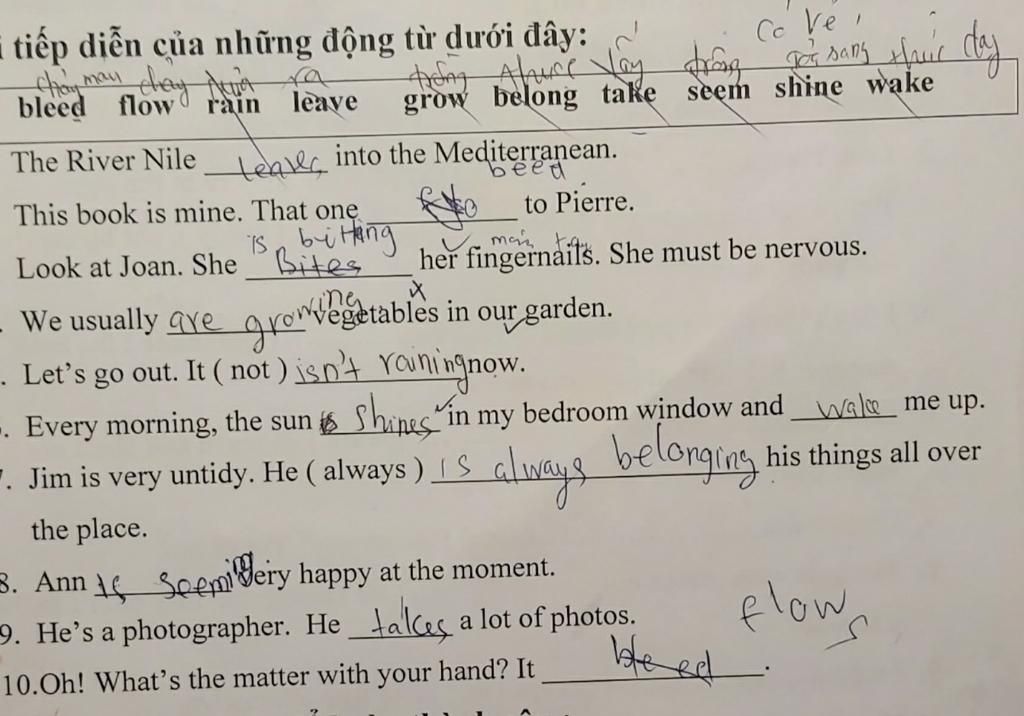 tiếp diễn của những động từ dưới đây:
Có vẻ
chảy máu chảy ra trồng lấy trồng sang thức dạy
bleed flow rain leave grow belong take seem shine wake
The River Nile leaves into the Mediterranean.
beed
This book is mine. That one to Pierre.
is bitting
Look at Joan. She Bites her fingernails. She must be nervous.
We usually are growing vegetables in our garden.
. Let's go out. It ( not ) isn't raining now.
. Every morning, the sun is shines in my bedroom window and wake me up.
. Jim is very untidy. He ( always ) is always belonging his things all over
the place.
8. Ann is seeming very happy at the moment.
9. He's a photographer. He takes a lot of photos.
flows
10.Oh! What's the matter with your hand? It bleed.